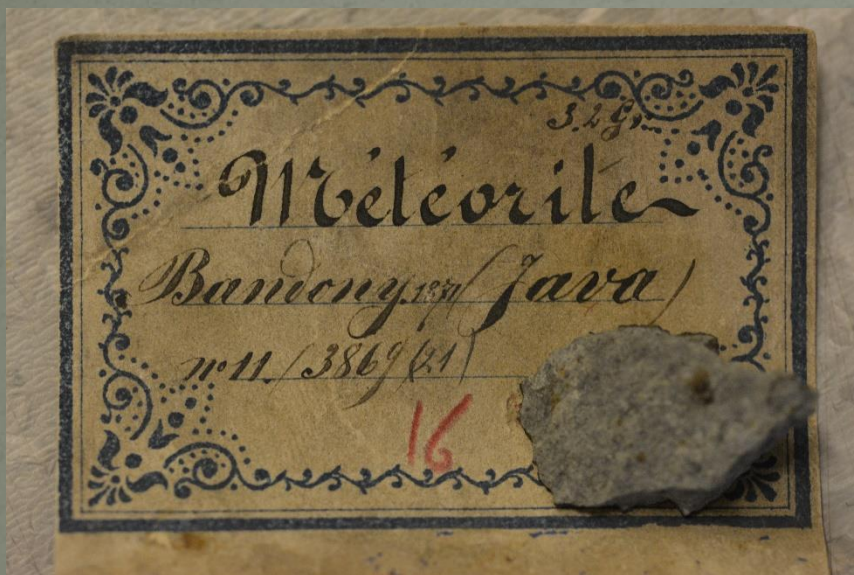 3.2 Gr.
Météorite
Bandong 1871 (Java)
nº 11. / 3869 (21)
16